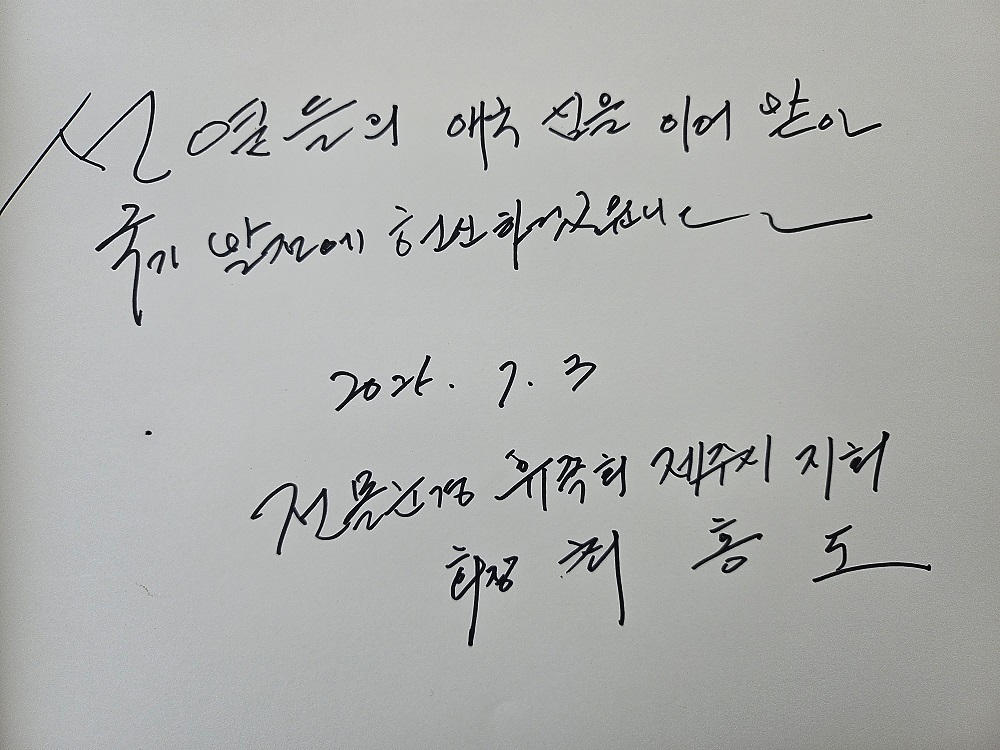 선열들의 애국심을 이어 받아
국가 발전에 헌신하겠습니다
7. 3
전몰군경 유족회 제주시 지회
회장 홍도